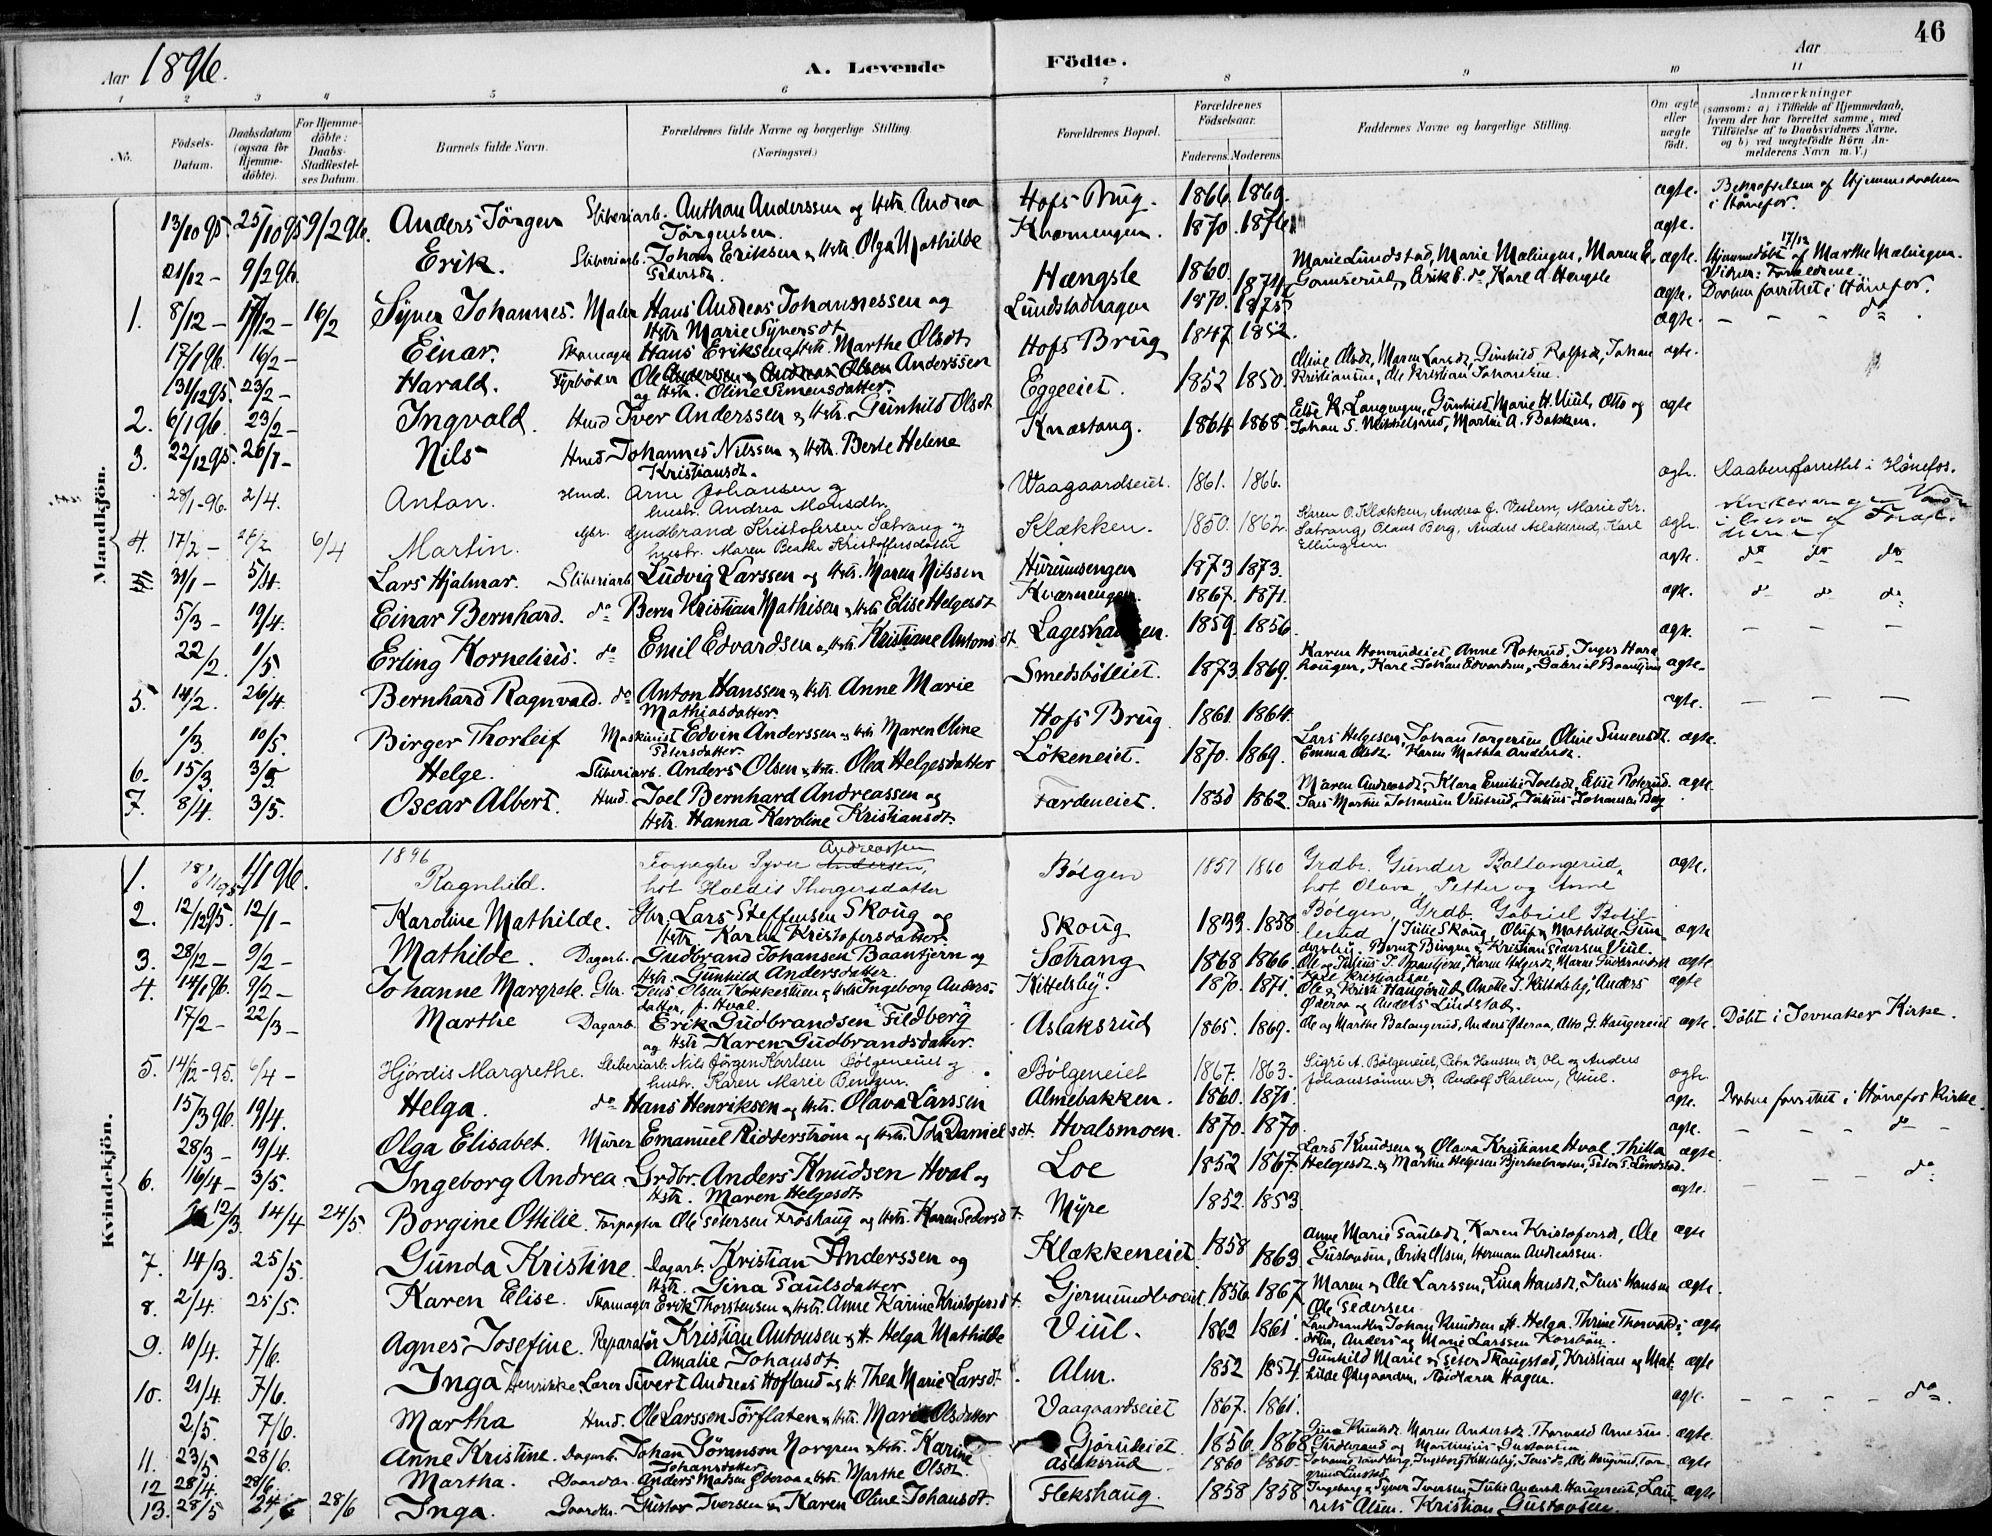 46
Aar 1896.
A. Levende Födte.
Aar
1 2 3 4 5 6 7 8 9 10 11
No.
Födsels-Datum.
Daabsdatum (ogsaa for Hjemme-döbte).
For Hjemme-döbte: Daabs-Stadfæstel-ses Datum.
Barnets fulde Navn.
Forældrenes fulde Navne og borgerlige Stilling. (Næringsvei.)
Forældrenes Bopæl.
Forældrenes Födselsaar.
Faderens. Moderens.
Faddernes Navne og borgerlige Stilling.
Om ægte eller uægte födt.
Anmærkninger
(saasom: a) i Tilfælde af Hjemmedaab, hvem der har forrettet samme, med Tilföielse af to Daabsvidners Navne. og b) ved uægtefödte Börn An-melderens Navn m. V.)
Mandkjön.
13/10 95 25/10 95 9/2 96. Anders Jörgen Sliberiarb. Anthon Anderssen og Hstr. Andrea Jörgensen. Hofs Brug. 1866. 1869. ægte. Bekræftelsen af Hjemmedaaben i Hönefos.
21/12 – 9/2 96. Erik. Sliberiarb. Johan Eriksen og Hstr. Olga Mathilde Pedersdt. Kværnengen. 1870. 1876. ægte.
1. 8/12 – 17/12 – 16/2 Syver Johannes. Maler Hans Andreas Johannessen og Hstr. Marie Syversdt. Hængsle 1860. 1874. Marie Lundstad, Marie Mælingen, Maren E. Gommerud, Erik E. do, Karl A. Hengsle ægte. Hjemmedöbt 17/12 af Marthe Mælingen. Vidner: Forældrene.
17/1 96. 16/2 – Einar. Skomager Hans Eriksen og Hstr. Marthe Olsdt. Lundstadhagen 1870. 1875. ægte. Daaben forrettet i Hönefos.
31/12 95. 23/2 – Harald. Fyrböder Ole Anderssen og Hstr. Oline Simensdatter. Hofs Brug 1847. 1852. ægte. – – – do.
2. 6/1 96. 23/2 – Ingvald. Hmd Iver Anderssen og Hstr. Gunhild Olsdt. Eggeeiet. 1852 1850. Oline Olsdt, Maren Larsdt, Gunhild Rolfsdt, Johan Kristiansen, Ole Kristian Johansen. ægte.
3. 22/12 95. 26/1 – Nils Hmd Johannes Nilssen og Hstr. Berte Helene Kristiansdt. Knæstang. 1864. 1868. Otto og Johan S. Mikkelsrud, Martin A. Bakken. ægte
28/1 – 96. 2/4. Anton. Hmd. Arne Johansen og hustr. Andrea Monsdtr. Vaagaardseiet. 1861. 1866. ægte. Daaben forrettet i Hönefos.
4. 17/2 – 6/4 Martin. Gbr. Gudbrand Kristofersen Sætrang og hustr. Maren Beathe Kristoffersdatter Klækken. 1850. 1862. Karen O. Klækken, Andrea G. Vestern, Marie Kr. Sætrang, Olaus Berg, Anders Aslaksrud, Karl Ellingsen. ægte.
31/1 – 5/4. Lars Hjalmar. Sliberiarb. Ludvig Larssen og Hstr. Maren Nilssen Hurumsengen 1873 1873. ægte. do do do
5/3 – 19/4. Einar Bernhard. do Bern Kristian Mathisen og Hstr. Elise Helgesdt Kværnengen. 1867. 1871. ægte. do do do
22/2. 1/5. Erling Kornelius. do Emil Edvardsen og Hstr. Kristiane Antonsdt. 1859. 1856. ægte. – – –
5. 14/2. 26/4. Bernhard Ragnvald. do Anton Hanssen og Hstr. Anne Marie Mathiasdatter. Smedsböleiet. 1873. 1869. Karl Johan Edvardsen, ægte.
1/3. 10/5. Birger Thorleif Maskinist Edvin Anderssen og Hstr. Maren Oline Petersdatter. Hofs Brug 1861. 1864. ægte. – – –
6. 15/3. 3/5. Helge. Sliberiarb. Anders Olsen og Hstr. Olea Helgesdatter Lökeneiet. 1870. 1869. Lars Helgesen, Johan Torgersen, Oline Simensdt. Emma Olsdt. Karen Mathea Andersdt. ægte.
7. 8/4. 3/5. Oscar Albert. Hmd. Joel Bernhard Andreassen og Hstr. Hanna Karoline Kristiansdt. Færdeneiet. 1858 1862. Maren Andreasdt, Klara Emilie Joelsdt, Elise Roterud. Jens Martin Johansen Veserud, Julius Johansen Berg ægte.
Kvindekjön.
1896
1. 18/11 95 1/1 96. Ragnhild. Forpagter Syver Andreassen, hst Haldis Thorgersdatter Bölgen 1857 1860 Grdbr. Gunder Baltangerud, hst Olava, Petter og Anne Bölgen, Grdb. Gabriel Botil-lerud ægte.
2. 12/12 95. 12/1 – Karoline Mathilde. Gbr. Lars Steffensen Skoug og Hstr. Karen Kristofersdatter. Skoug 1833. 1858. Julie Skoug, Oluf og Mathilde Gun-dersby. Bernt Bingen og Kristian Pedersen Viul. ægte
3. 28/12 – 9/2 – Mathilde. Dagarb. Gudbrand Johansen Baantjern og Hstr. Gunhild Andersdatter. Sætrang 1868 1866. Ole og Julius J. Baantjern, Karen Helgesdt, Maren Gudbrandsdt Karl Kristiansen. ægte
4. 14/1 96. 9/2 – Johanne Margrete. Gbr. Jens Olsen Kokkestuen og Hstr. Ingeborg Anders-datter, f. Hval. Kittelsby. 1870. 1871. Ole og Kristi Haugerud, Anette J. Kittelsby, Anders Öderaa og Anders Lindstad. ægte
17/2 – 22/3 – Marthe Dagarb. Erik Gudbrandsen "Fildberg" og Hstr. Karen Gudbrandsdatter. Aslaksrud 1865. 1869. Ole og Marthe Balangerud, Anders Öderaa, Otto G. Haugereiet ægte. Döbt i Jevnaker Kirke.
5. 14/12 – 95. 6/4 – Hjördis Margrethe. Sliberiarb. Nils Jörgen Karlsen Bölgeneiet og hustr. Karen Marie Bentzen. Bölgeneiet 1867. 1863. Sigri A. Bölgeneiet, Petra Hanssen do, Ole og Anders Johanssönner do, Rudolf Karlsen, Viul. ægte.
15/3 96. 19/4. Helga. do Hans Henriksen og Hstr. Olava Larssen Almebakken. 1860. 1871. ægte. Daaben forrettet i Hönefos Kirke.
28/3 – 19/4. Olga Elisabet. Murer Emanuel Ridderström og Hstr. Ida Danielsdt. Hvalsmoen. 1870. 1870. ægte. – – – do –
6. 16/4 – 3/5. Ingeborg Andrea. Grdbr. Anders Knudsen Hval og Hstr. Maren Helgesdt. Loe 1852 1867. Lars Knudsen og Olava Kristiane Hval, Thilla Helgesdt. og Martin Helgesen Bjerkebraaten, Peter P. Lindstad. ægte.
12/3. 14/4 24/5. Borgine Ottilie. Forpagter Ole Petersen Fröshaug og Hstr. Karen Pedersdt. Myre 1852. 1853. ægte. – – – do.
7. 14/3. 25/5. Gunda Kristine. Dagarb. Kristian Anderssen og Hstr. Gina Paulsdatter. Klækkeneiet 1858 1863 Anne Marie Paulsdt, Karen Kristofersdt, Ole Gustavsen, Erik Olsen, Herman Andreassen. ægte
8. 2/4. 25/5. Karen Elise. Skomager Erik Thorstensen og Hstr. Anne Karine Kristofersdt. Gjermundboeiet. 1856. 1867 Maren og Ole Larssen, Lina Hansdt, Jens Hansen Ole Pedersen. ægte.
9. 10/4. 7/6. Agnes Josefine. Reparatör Kristian Antonsen og H. Helga Mathilde Amalie Johansdt. Viul. 1862 1861. Landhandler Johan Knudsen og H. Helga, Thrine Thorvalds-datter, Anders og Marie Larssen Korsbön. ægte
10. 21/4. 7/6. Inga Henrikke Lærer Sivert Andreas Hofland og H. Thea Marie Larsdt. Alm. 1852 1854. Gunhild Marie og Peter Skaugstad, Kristian og Mat-hilde Ödegaarden, Hagen. ægte
2/5. 7/6. Martha Hmd. Ole Larssen Törflaten og Hstr. Marie Olsdatter Vaagaardseiet 1867. 1861. ægte. – – – – do
11. 23/5 28/6. Anne Kristine. Dagarb. Johan Göranson Norgren og Hstr. Karine Johansdatter. Gjörudeiet. 1856 1868 Knutsdt. Maren Andersdt. Thorvald Arnesen Gudbrand og Martinius Gustavsen. ægte.
12 28/4. 28/6. Martha. Gaardbr. Anders Madsen Öderaa og Hstr. Marthe Olsdt. Aslaksrud 1860 1860. Ingeborg Kittelsby, Jens do, Ole Haugerud, ægte
13. 28/5 24/6 28/6 Inga. Gaardbr. Gustav Iversen og Karen Oline Johansdt. Flekshaug. 1858 1858 Ingeborg og Syver Iversen, Julie Andersdt Haugereiet, Lau-rits Olsen. Kristian Gustavsen. ægte